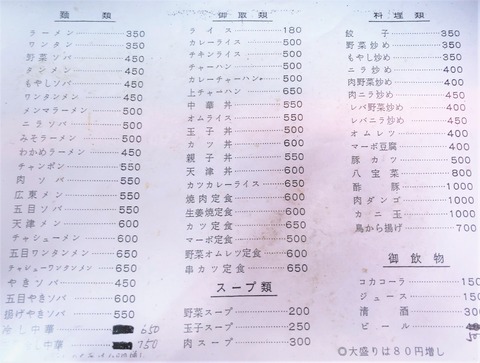 麺類
ラーメン 350
ワンタン 350
野菜ソバ 450
タンメン 450
もやしソバ 450
ワンタンメン 450
メンマラーメン 500
ニラソバ 500
みそラーメン 500
わかめラーメン 450
チャンポン 550
肉ソバ 550
広東メン 550
五目ソバ 550
天津メン 600
チャシューメン 600
五目ワンタンメン 600
チャシューワンタンメン 650
やきソバ 450
五目やきソバ 600
揚げやきソバ 650
冷し中華 650
中華 750
御飯類
ライス 180
カレーライス 500
チキンライス 500
チャーハン 500
カレーチャーハン 500
上チャーハン 650
中華丼 550
オムライス 550
玉子丼 500
カツ丼 600
親子丼 550
天津丼 600
カツカレーライス 650
焼肉定食 600
生姜焼定食 600
カツ定食 650
マーボ定食 500
野菜オムレツ定食 600
串カツ定食 650
スープ類
野菜スープ 200
玉子スープ 250
肉スープ 300
料理類
餃子 350
野菜炒め 350
もやし炒め 350
ニラ炒め 400
肉野菜炒め 400
肉ニラ炒め 450
レバ野菜炒め 400
レバニラ炒め 450
オムレツ 400
マーボ豆腐 400
豚カツ 500
八宝菜 800
酢豚 1000
肉ダンゴ 1000
カニ玉 1000
鳥から揚げ 700
御飲物
コカコーラ 150
ジュース 150
清酒 300
ビール
◎大盛りは80円増し